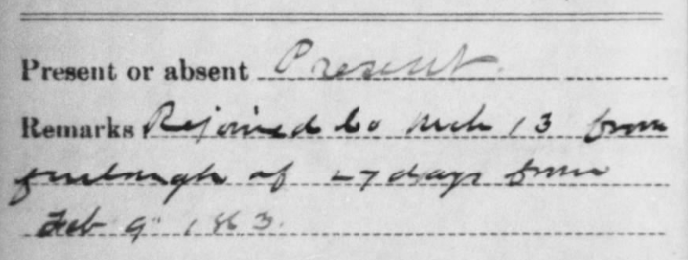 Present or absent Present.
Remarks: Rejoined Co Mch 13 from
furlough of 27 days from
Feb 9" 1863.